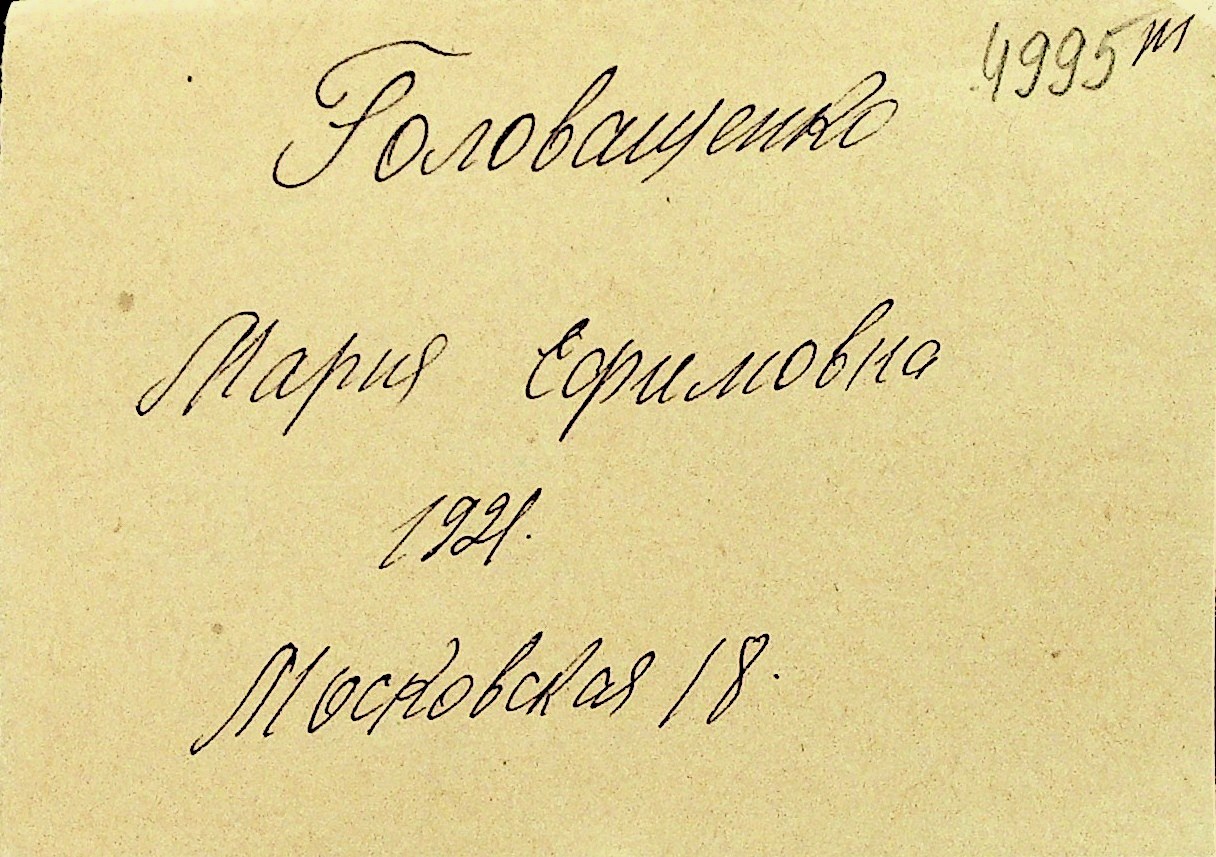 4995 т
Головащенко
Мария Ефимовна
1921.
Московская 18.